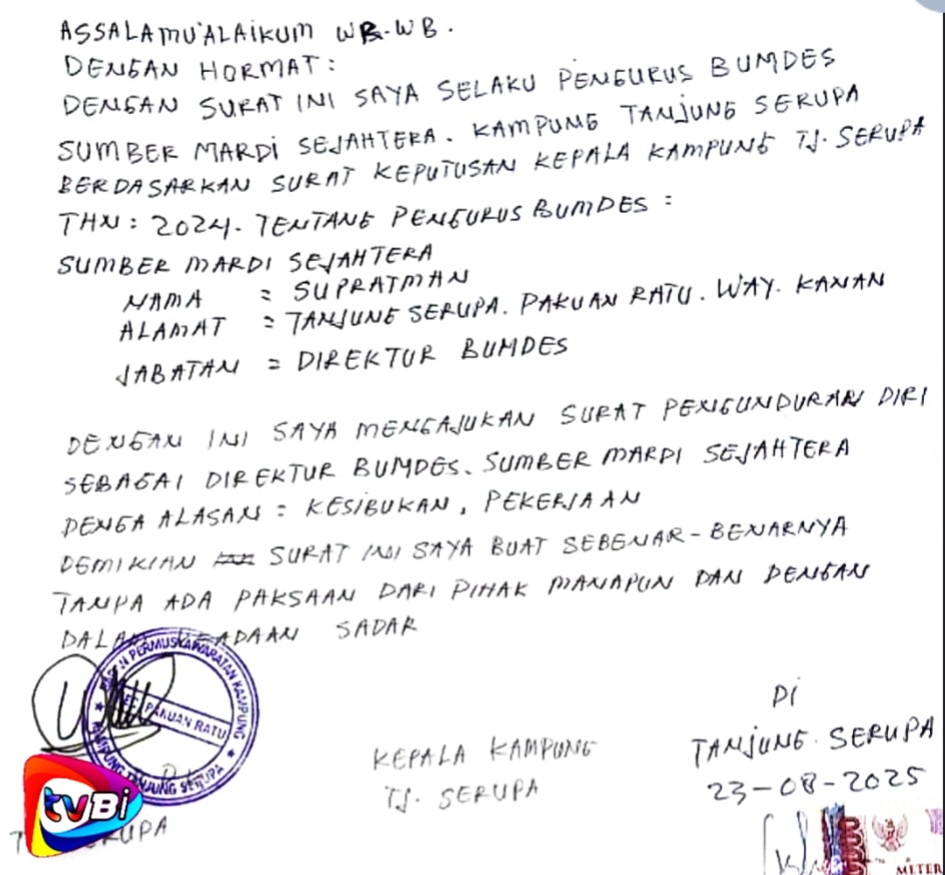 ASSALAMU'ALAIKUM WR-WB.
DENGAN HORMAT:
DENGAN SURAT INI SAYA SELAKU PENGURUS BUMDES
SUMBER MARDI SEJAHTERA. KAMPUNG TANJUNG SERUPA
BERDASARKAN SURAT KEPUTUSAN KEPALA KAMPUNG TJ. SERUPA
THN: 2024. TENTANG PENGURUS BUMDES:
SUMBER MARDI SEJAHTERA
NAMA = SUPRATMAN
ALAMAT = TANJUNG SERUPA. PAKUAN RATU. WAY. KANAN
JABATAN = DIREKTUR BUMDES
DENGAN INI SAYA MENGAJUKAN SURAT PENGUNDURAN DIRI
SEBAGAI DIREKTUR BUMDES. SUMBER MARDI SEJAHTERA
DENGA ALASAN = KESIBUKAN, PEKERJAAN
DEMIKIAN SURAT INI SAYA BUAT SEBENAR-BENARNYA
TANPA ADA PAKSAAN DARI PIHAK MANAPUN DAN DENGAN
DALAM KEADAAN SADAR
BADAN PERMUSYAWARATAN KAMPUNG
KEC. PAKUAN RATU
KAMPUNG TANJUNG SERUPA
tvBi
KEPALA KAMPUNG
TJ. SERUPA
DI
TANJUNG. SERUPA
23-08-2025
METER